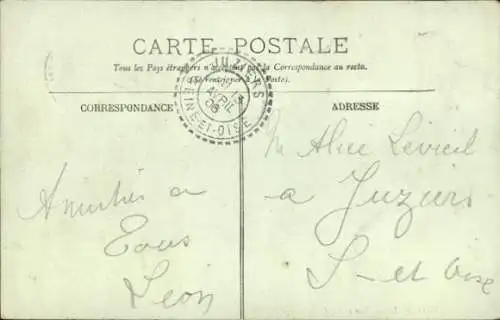 CARTE POSTALE
Tous les Pays étrangers n'acceptent pas la Correspondance au recto.
(Se renseigner à la Poste).
JUZIERS
AVRIL
08
SEINE-ET-OISE
CORRESPONDANCE
ADRESSE
Amitiés a
Tous
Léon
M Alice Levieil
a Juziers
S- et Oise